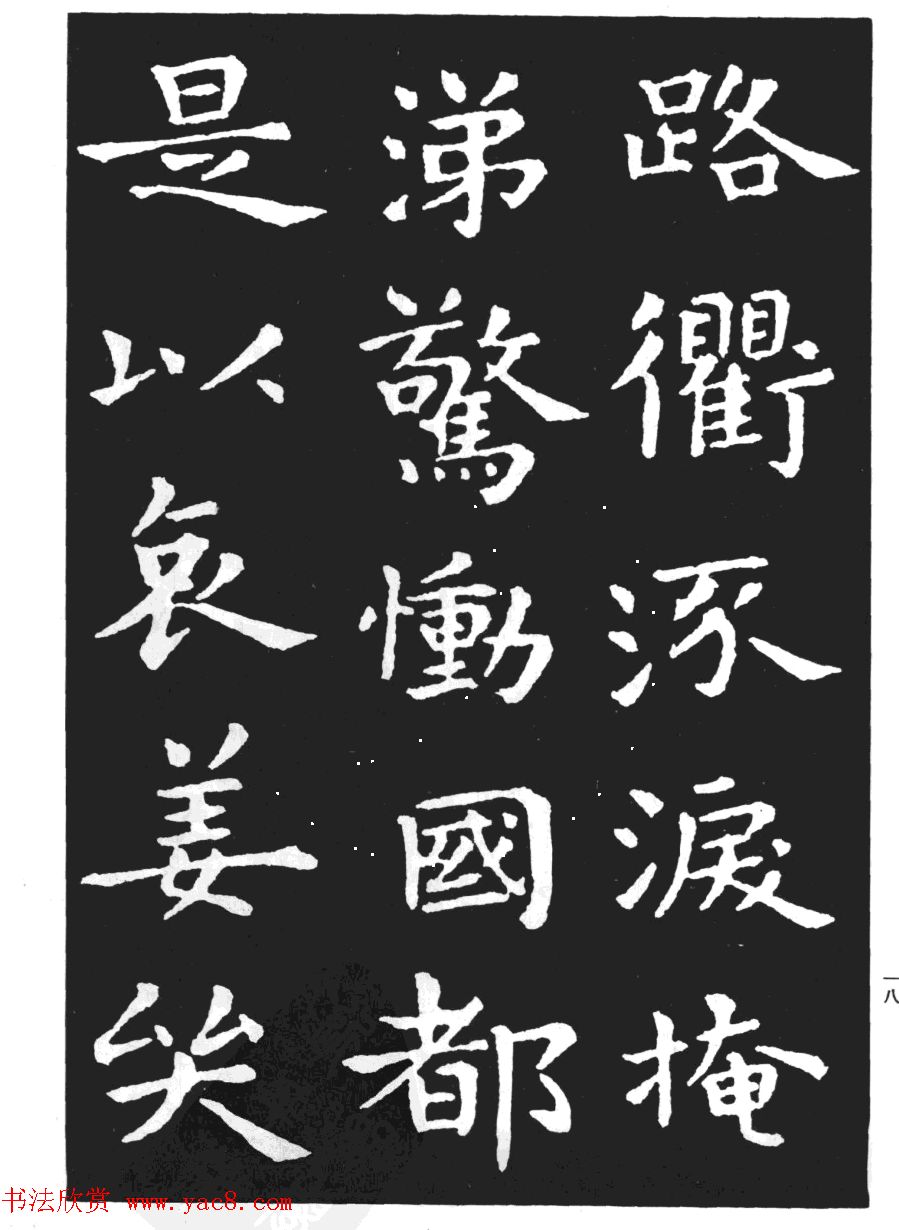 路衢涿淚掩
涕驚慟國都
是以哀姜哭
一八
书法欣赏 www.yac8.com